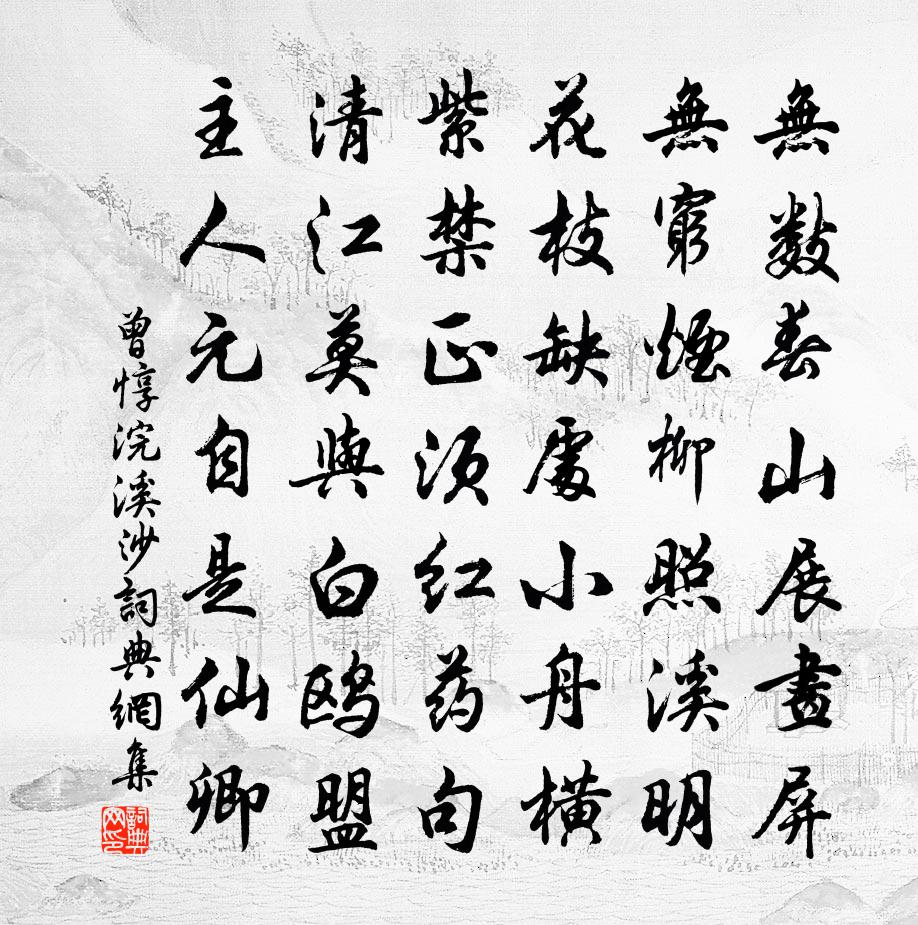 無數春山展畫屏
無窮煙柳照溪明
花枝缺處小舟橫
紫禁正須紅药句
清江莫與白鸥盟
主人元自是仙卿
曾惇浣溪沙詞典網集
詞典网印